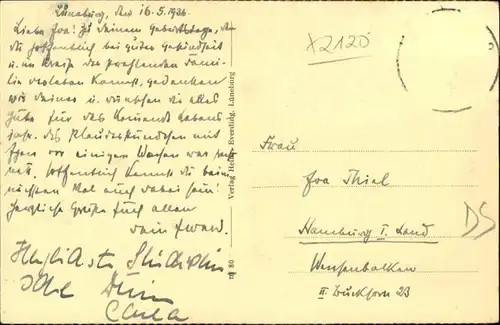 Lüneburg, den 16.5.1936.
Liebe Eva! Zu Deinem Geburtstage, den
Du hoffentlich bei guter Gesundheit
u. im Kreise der strahlenden Fami-
lie verleben kannst, gedenken
wir Deiner u. wünschen Dir alles
Gute für das kommende Lebens-
jahr. Das Plauderstündchen mit
vor einigen Wochen war
nett. Hoffentlich kannst Du beim
nächsten Mal auch dabei sein!
Herzliche Grüße Euch allen
Dein Ewald.
Herzlichste
Carla
Verlag Heinr. Everding, Lüneburg
m 80
x2120
Frau
Eva Thiel
Hamburg I. Land
Wensenbalken
II. Duckhorn 23
DS